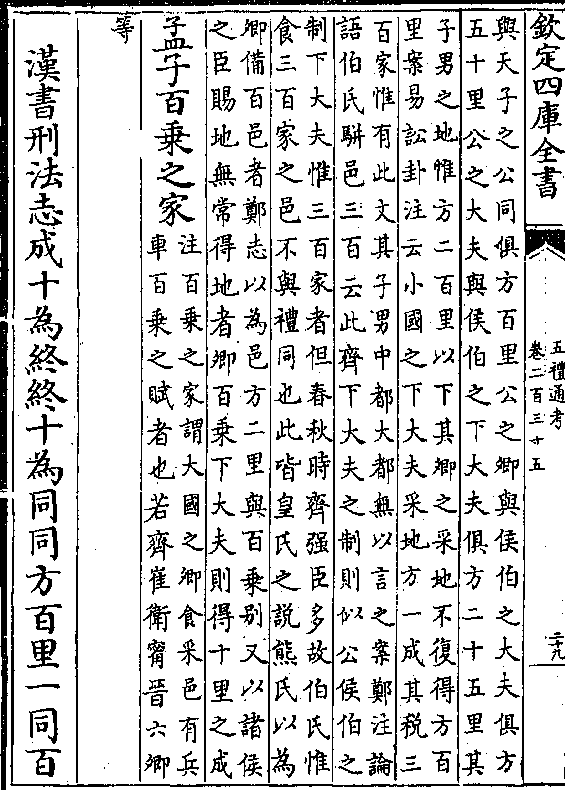 欽定四庫全書
五禮通考
卷二百三十五
二十九
與天子之公同俱方百里公之卿與侯伯之大夫俱方
五十里公之大夫與侯伯之下大夫俱方二十五里其
子男之地惟方二百里以下其卿之采地不復得方百
里案易訟卦注云小國之下大夫采地方一成其税三
百家惟有此文其子男中都大都無以言之案鄭注論
語伯氏駢邑三百云此齊下大夫之制則似公侯伯之
制下大夫惟三百家者但春秋時齊强臣多故伯氏惟
食三百家之邑不與禮同也此皆皇氏之説熊氏以為
卿備百邑者鄭志以為邑方二里與百乗别又以諸侯
之臣賜地無常得地者卿百乗下大夫則得十里之成
孟子百乗之家
注百乗之家謂大國之卿食采邑有兵
車百乗之賦者也若齊崔衛甯晉六卿
等
漢書刑法志成十為終終十為同同方百里一同百